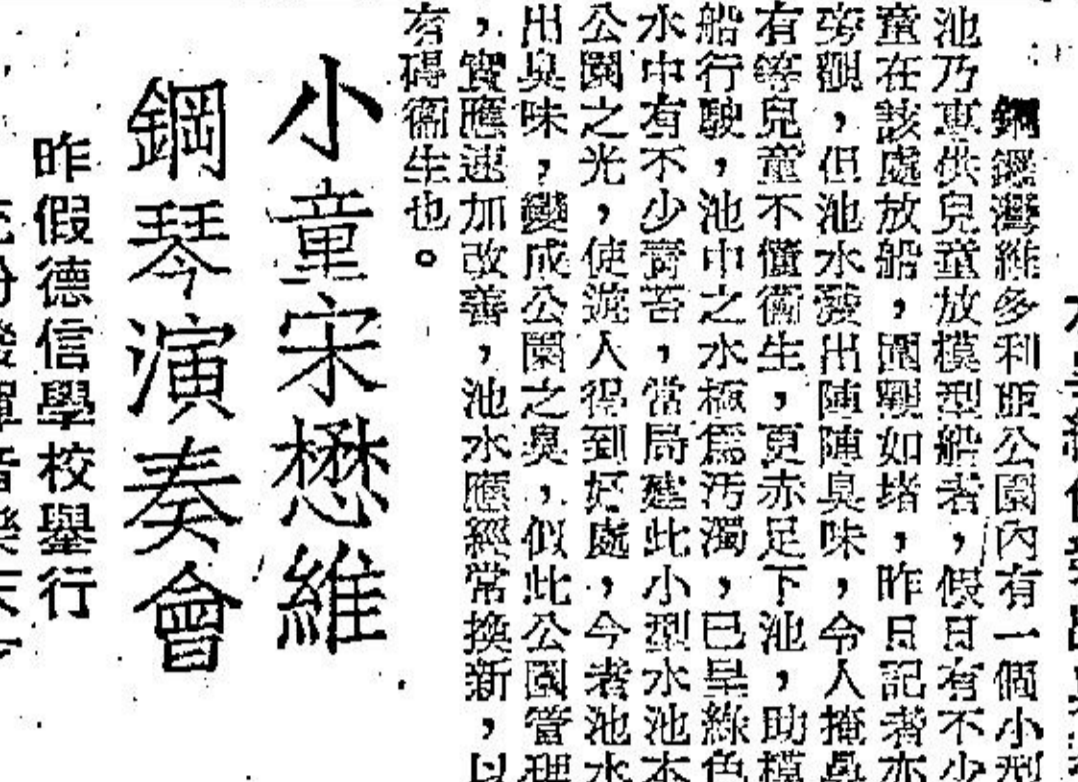 銅鑼灣維多利亞公園內有一個小型
池乃專供兒童放模型船者，假日有不少
童在該處放船，圍觀如堵，昨日記者亦
旁觀，但池水發出陣陣臭味，令人掩鼻
有等兒童不懂衞生，更赤足下池，助模
船行駛，池中之水極爲汚濁，已呈綠色
水中有不少靑苔，當局建此小型水池本
公園之光，使遊人得到好處，今者池水
出臭味，變成公園之臭，似此公園管理
，實應速加改善，池水應經常換新，以
有碍衞生也。
小童宋懋維
鋼琴演奏會
昨假德信學校舉行